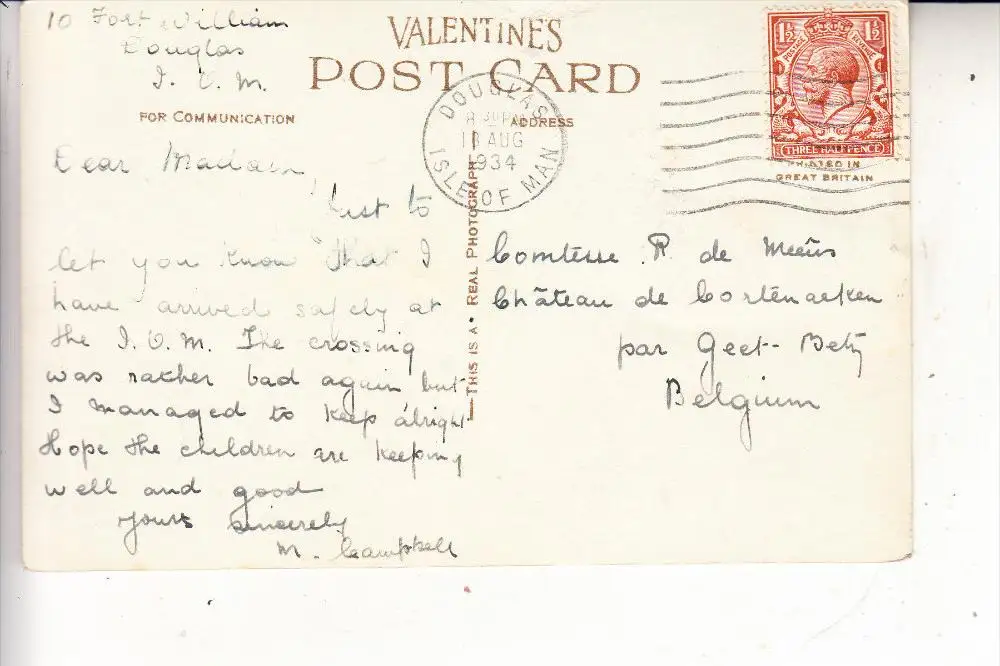 10 Fort William
Douglas
I. O. M.
VALENTINE'S
POST CARD
FOR COMMUNICATION
ADDRESS
DOUGLAS
AUG
1934
ISLE OF MAN
1½ 1½
POSTAGE REVENUE
THREE HALFPENCE
PRINTED IN
GREAT BRITAIN
THIS IS A REAL PHOTOGRAPH
Dear Madam,
Just to
let you know that I
have arrived safely at
the I. O. M. The crossing
was rather bad again but
I managed to keep alright
Hope the children are keeping
well and good
Yours sincerely
M. Campbell
Comtesse R. de Meeûs
Château de Cortenaeken
par Geet-Betz
Belgium